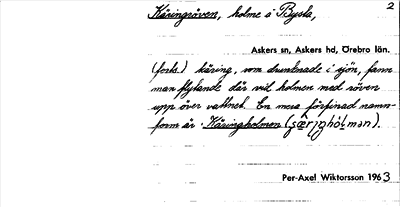 2
Käringröven, holme i Bysta,
Askers sn, Askers hd, Örebro län.
(forts.) käring, som drunknade i sjön, fann
man flytande där vid holmen med röven
upp över vattnet. En mera förfinad namn-
form är Käringholmen
Per-Axel Wiktorsson 1963